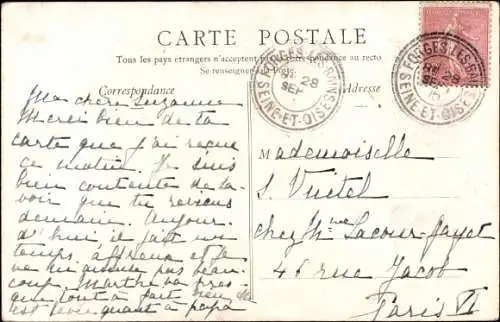 CARTE POSTALE
Tous les pays étrangers n'acceptent pas la correspondance au recto
Se renseigner à la Poste
Correspondance
Adresse
FORGES LES BAINS
28
SEPT
SEINE-ET-OISE
FORGES LES BAINS
28
SEPT
SEINE-ET-OISE
Ma chère Suzanne
Merci bien de ta
carte que j'ai reçue
ce matin. Je suis
bien contente de sa-
voir que tu reviens
demain. Aujour-
d'hui il fait un
temps affreux et je
ne m'amuse pas beau-
coup. Marthe va pres-
que tout à fait bien, elle
est levée quant à papa
Mademoiselle
S. Vuitel
chez Mme Lacour-Gayet
46 rue Jacob
Paris VI